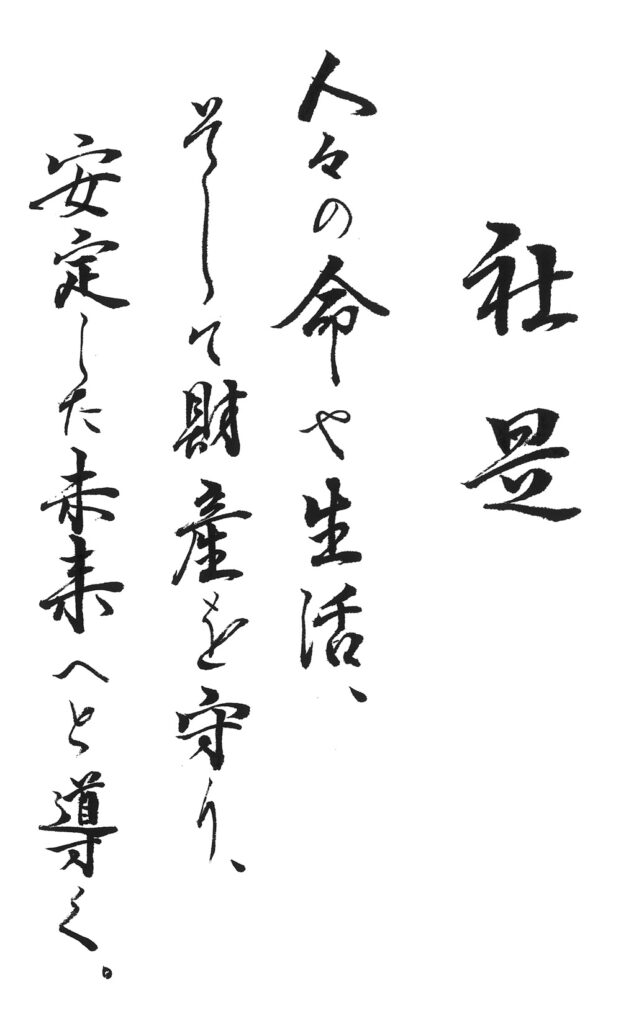 社是
人々の命や生活、
そして財産を守り、
安定した未来へと導く。